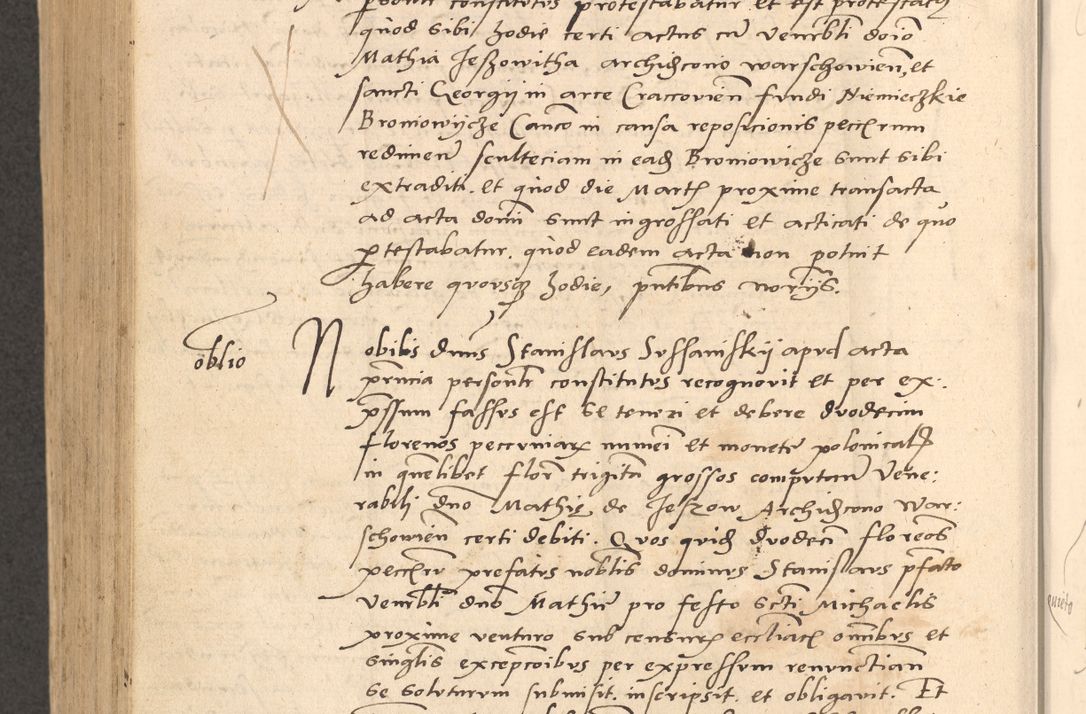 personaliter constitutus protestabatur et est protestatus
quod sibi hodie certi actus cum venerabili domino
Mathia Jeszowitha archidiacono warschowien, et
sancti Georgij in arce Craccovien fundi Niemieczkie
Bronowijcze Canco in causa reposicionis pecciarum
redimen sculteciam in eadem Bronowicze sunt sibi
extraditi. et quod die Martis proxime transacta
ad acta domini sunt ingrossati et acticati de quo
protestabatur. quod eadem acta non potuit
habere quousque hodie, pntibus notarijs.
oblio
Nobilis dnus Stanislaus Sussaniskij apud acta
pñcia personlr constitutus recognovit et per ex:
pssum fassus est se teneri et debere duodecim
florenos peccuniarum numeri et monete polonicalis
in quemlibet floren triginta grossos computan Vene:
rabili dno Mathie de Jeszow Archidiacono War:
schowien certi debiti. Quos quidem duodecim florenos
pecciarum prefatus noblis dominus Stanislaus pfato
venerbli dno Mathie pro festo scti Michaelis
proxime venturo sub censuris eccliacis omnibus et
singlis excepcoibus per expressum renunctian
se soluturum submisit. inscripsit. et obligavit. Et